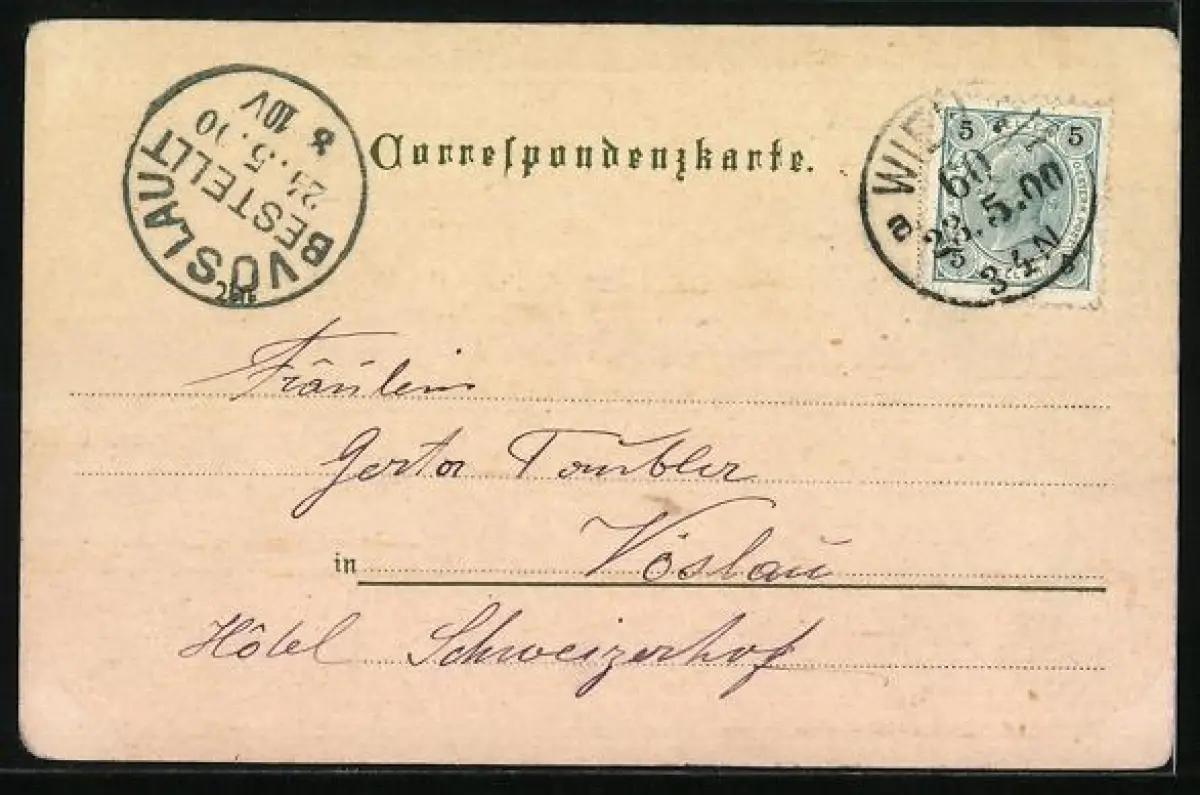 VÖSLAU
BESTELLT
24.5.00
8 10V
Correspondenzkarte.
WIEN
60
23.5.00
3-4N
a
5 5
5
Fräulein
Gerta Taubler
in Vöslau
Hôtel Schweizerhof